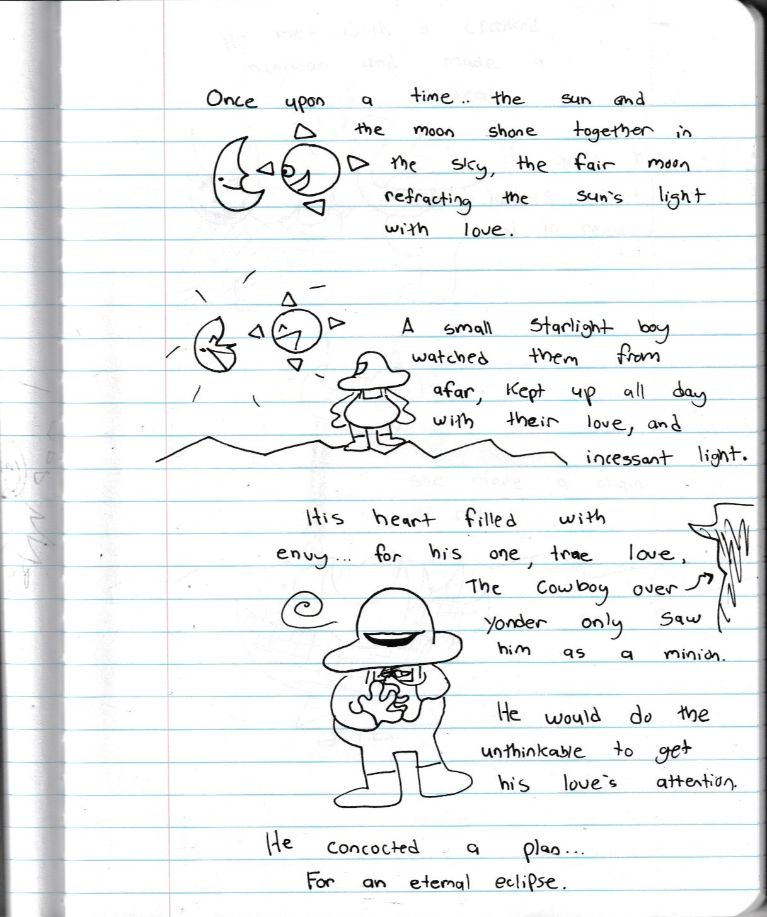 Once upon a time.. the sun and
the moon shone together in
the sky, the fair moon
refracting the sun's light
with love.
A small starlight boy
watched them from
afar, kept up all day
with their love, and
incessant light.
His heart filled with
envy... for his one, true love,
The Cowboy over
yonder only saw
him as a minion.
He would do the
unthinkable to get
his love's attention.
He concocted a plan...
For an eternal eclipse.